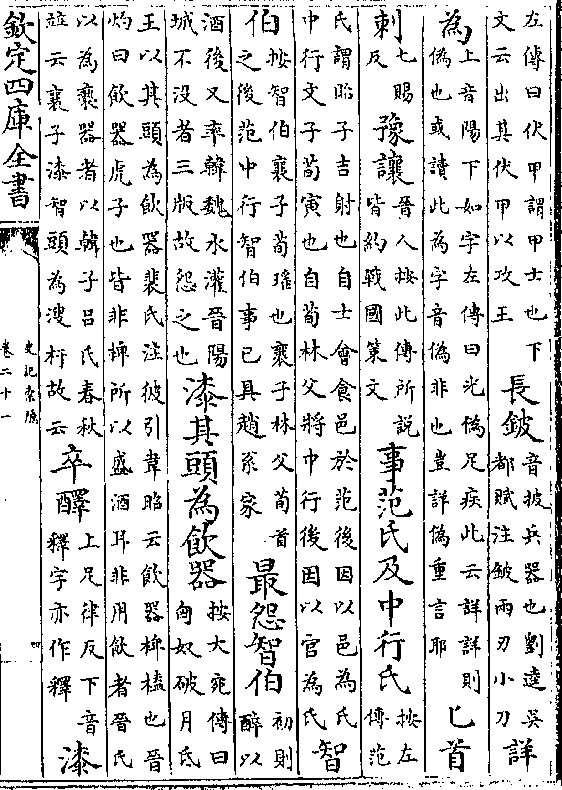 左傳曰伏甲謂甲士也下文云出其伏甲以攻王長鈹音披兵器也劉逵吳都賦注鈹兩刃小刀詳
為上音陽下如字左傳曰光偽足疾此云詳詳則偽也或讀此為字音偽非也豈詳偽重言耶匕首
刺七賜反豫讓晉人按此傳所說皆約戰國策文事范氏及中行氏按左傳范
氏謂昭子吉射也自士會食邑於范後因以邑為氏中行文子荀寅也自荀林父將中行後因以官為氏智
伯按智伯襄子荀瑤也襄子林父荀首之後范中行智伯事已具趙系家最怨智伯初則醉以
酒後又率韓魏水灌晉陽城不沒者三版故怨之也漆其頭為飲器按大宛傳曰匈奴破月氏
王以其頭為飲器裴氏注彼引韋昭云飲器椑榼也晉灼曰飲器虎子也皆非椑所以盛酒耳非用飲者晉氏
以為褻器者以韓子呂氏春秋並云襄子漆智頭為溲杅故云卒醳上足律反下音釋字亦作釋漆
欽定四庫全書
史記索隱
卷二十一
四